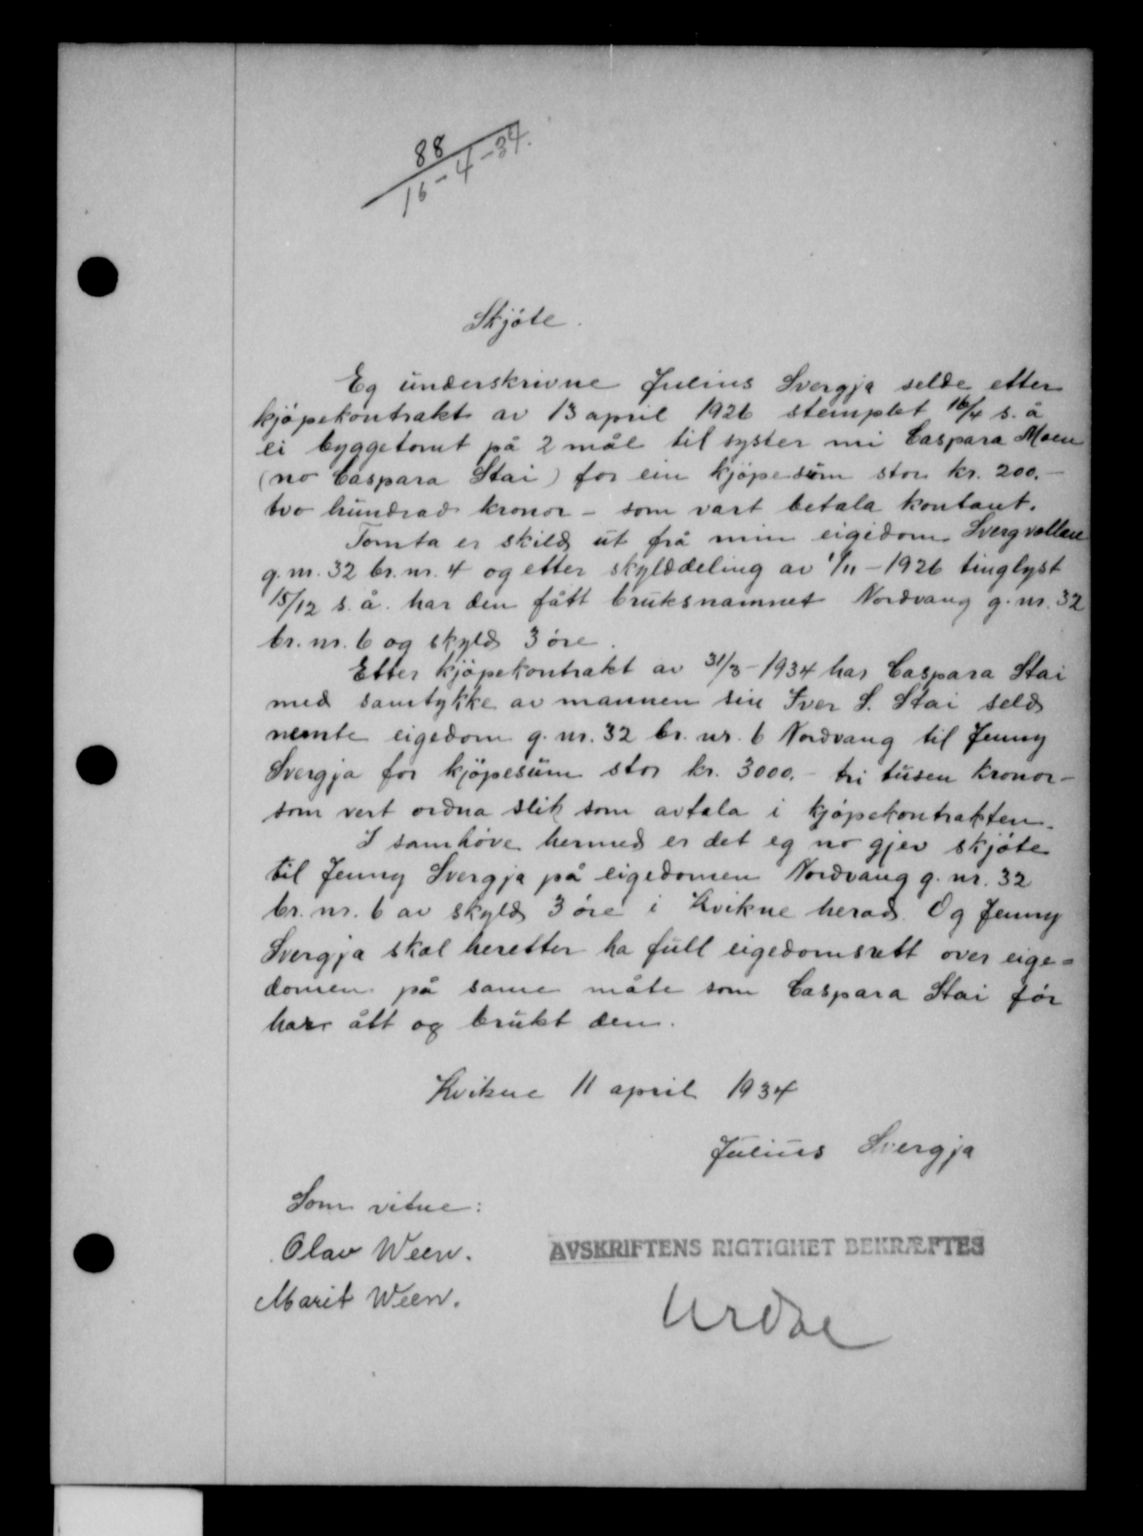 88
16-4-34.
Skjöte.
Eg underskrivne Julius Svergja selde etter
kjöpekontrakt av 13 april 1926 stemplet 16/4 s. å
ei byggetomt på 2 mål til syster mi Caspara Moen
(no Caspara Stai) for ein kjöpesum stor kr. 200.–
tvo hundrad kronor – som vart betala kontant.
Tomta er skild ut frå min eigedom Svergvollen
g. nr. 32 br. nr. 4 og etter skylddeling av 1/11 – 1926 tinglyst
15/12 s. å. har den fått bruksnamnet Nordvang g. nr. 32
br. nr. 6 og skyld 3 öre.
Etter kjöpekontrakt av 31/3 – 1934 har Caspara Stai
med samtykke av mannen sin Iver S. Stai seld
nemte eigedom g. nr. 32 br. nr. 6 Nordvang til Jenny
Svergja for kjöpesum stor kr. 3000.– tri tusen kronor –
som vert ordna slik som avtala i kjöpekontrakten.
I samhöve hermed er det eg no gjev skjöte
til Jenny Svergja på eigedomen Nordvang g. nr. 32
br. nr. 6 av skyld 3 öre i Kvikne herad. Og Jenny
Svergja skal heretter ha full eigedomsrett over eige=
domen på same måte som Caspara Stai för
har ått og brukt den.
Kvikne 11 april 1934
Julius Svergja
Som vitne:
Olav Ween.
AVSKRIFTENS RIGTIGHET BEKRÆFTES
Marit Ween.
Urdal